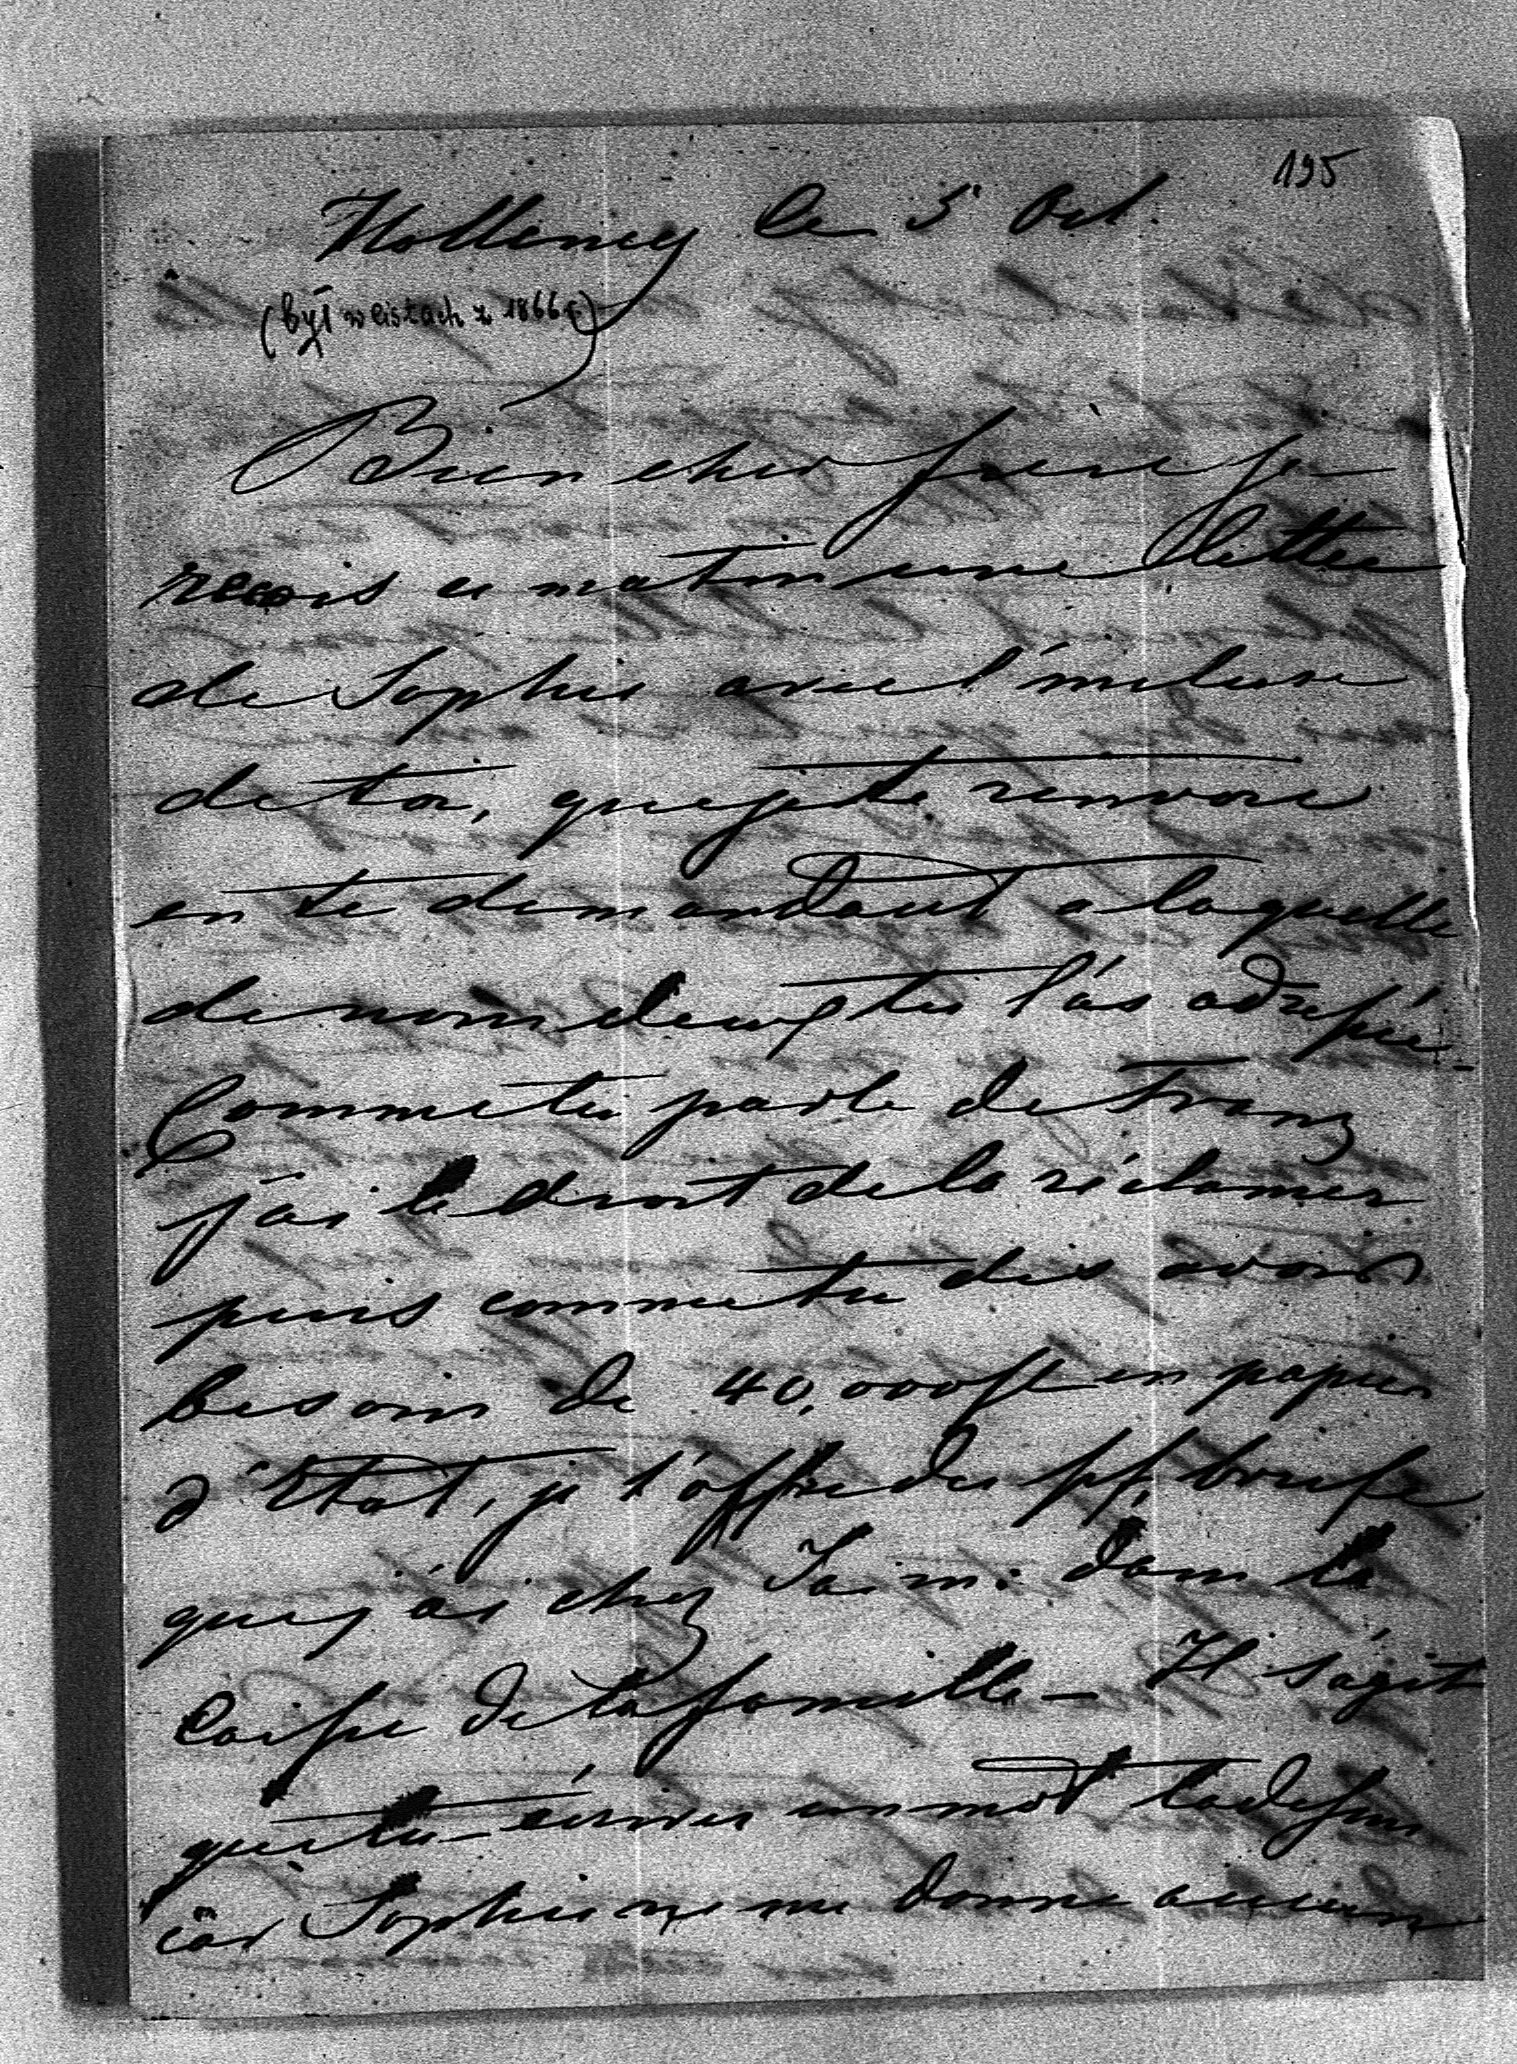 195
Holleney le 5 Oct.
(był w listach z 1866 r.)
Bien cher frère je
recois ce matin une lettre
de Sophie avec l'incluse
de toi, que je te renvoie
en te demandant a laquelle
de nous deux tu l'as adressée.
Comme tu parle de Franz
j'ai le droit de la réclamer
puis comme tu dis avoir
besoin de 40,000 fl en papier
d'Etat, je t'offre des
que j'ai chez dans la
Caisse de la famille – Il s'agit
que tu écrives un mot ladessus
car Sophie ne me donne aucun